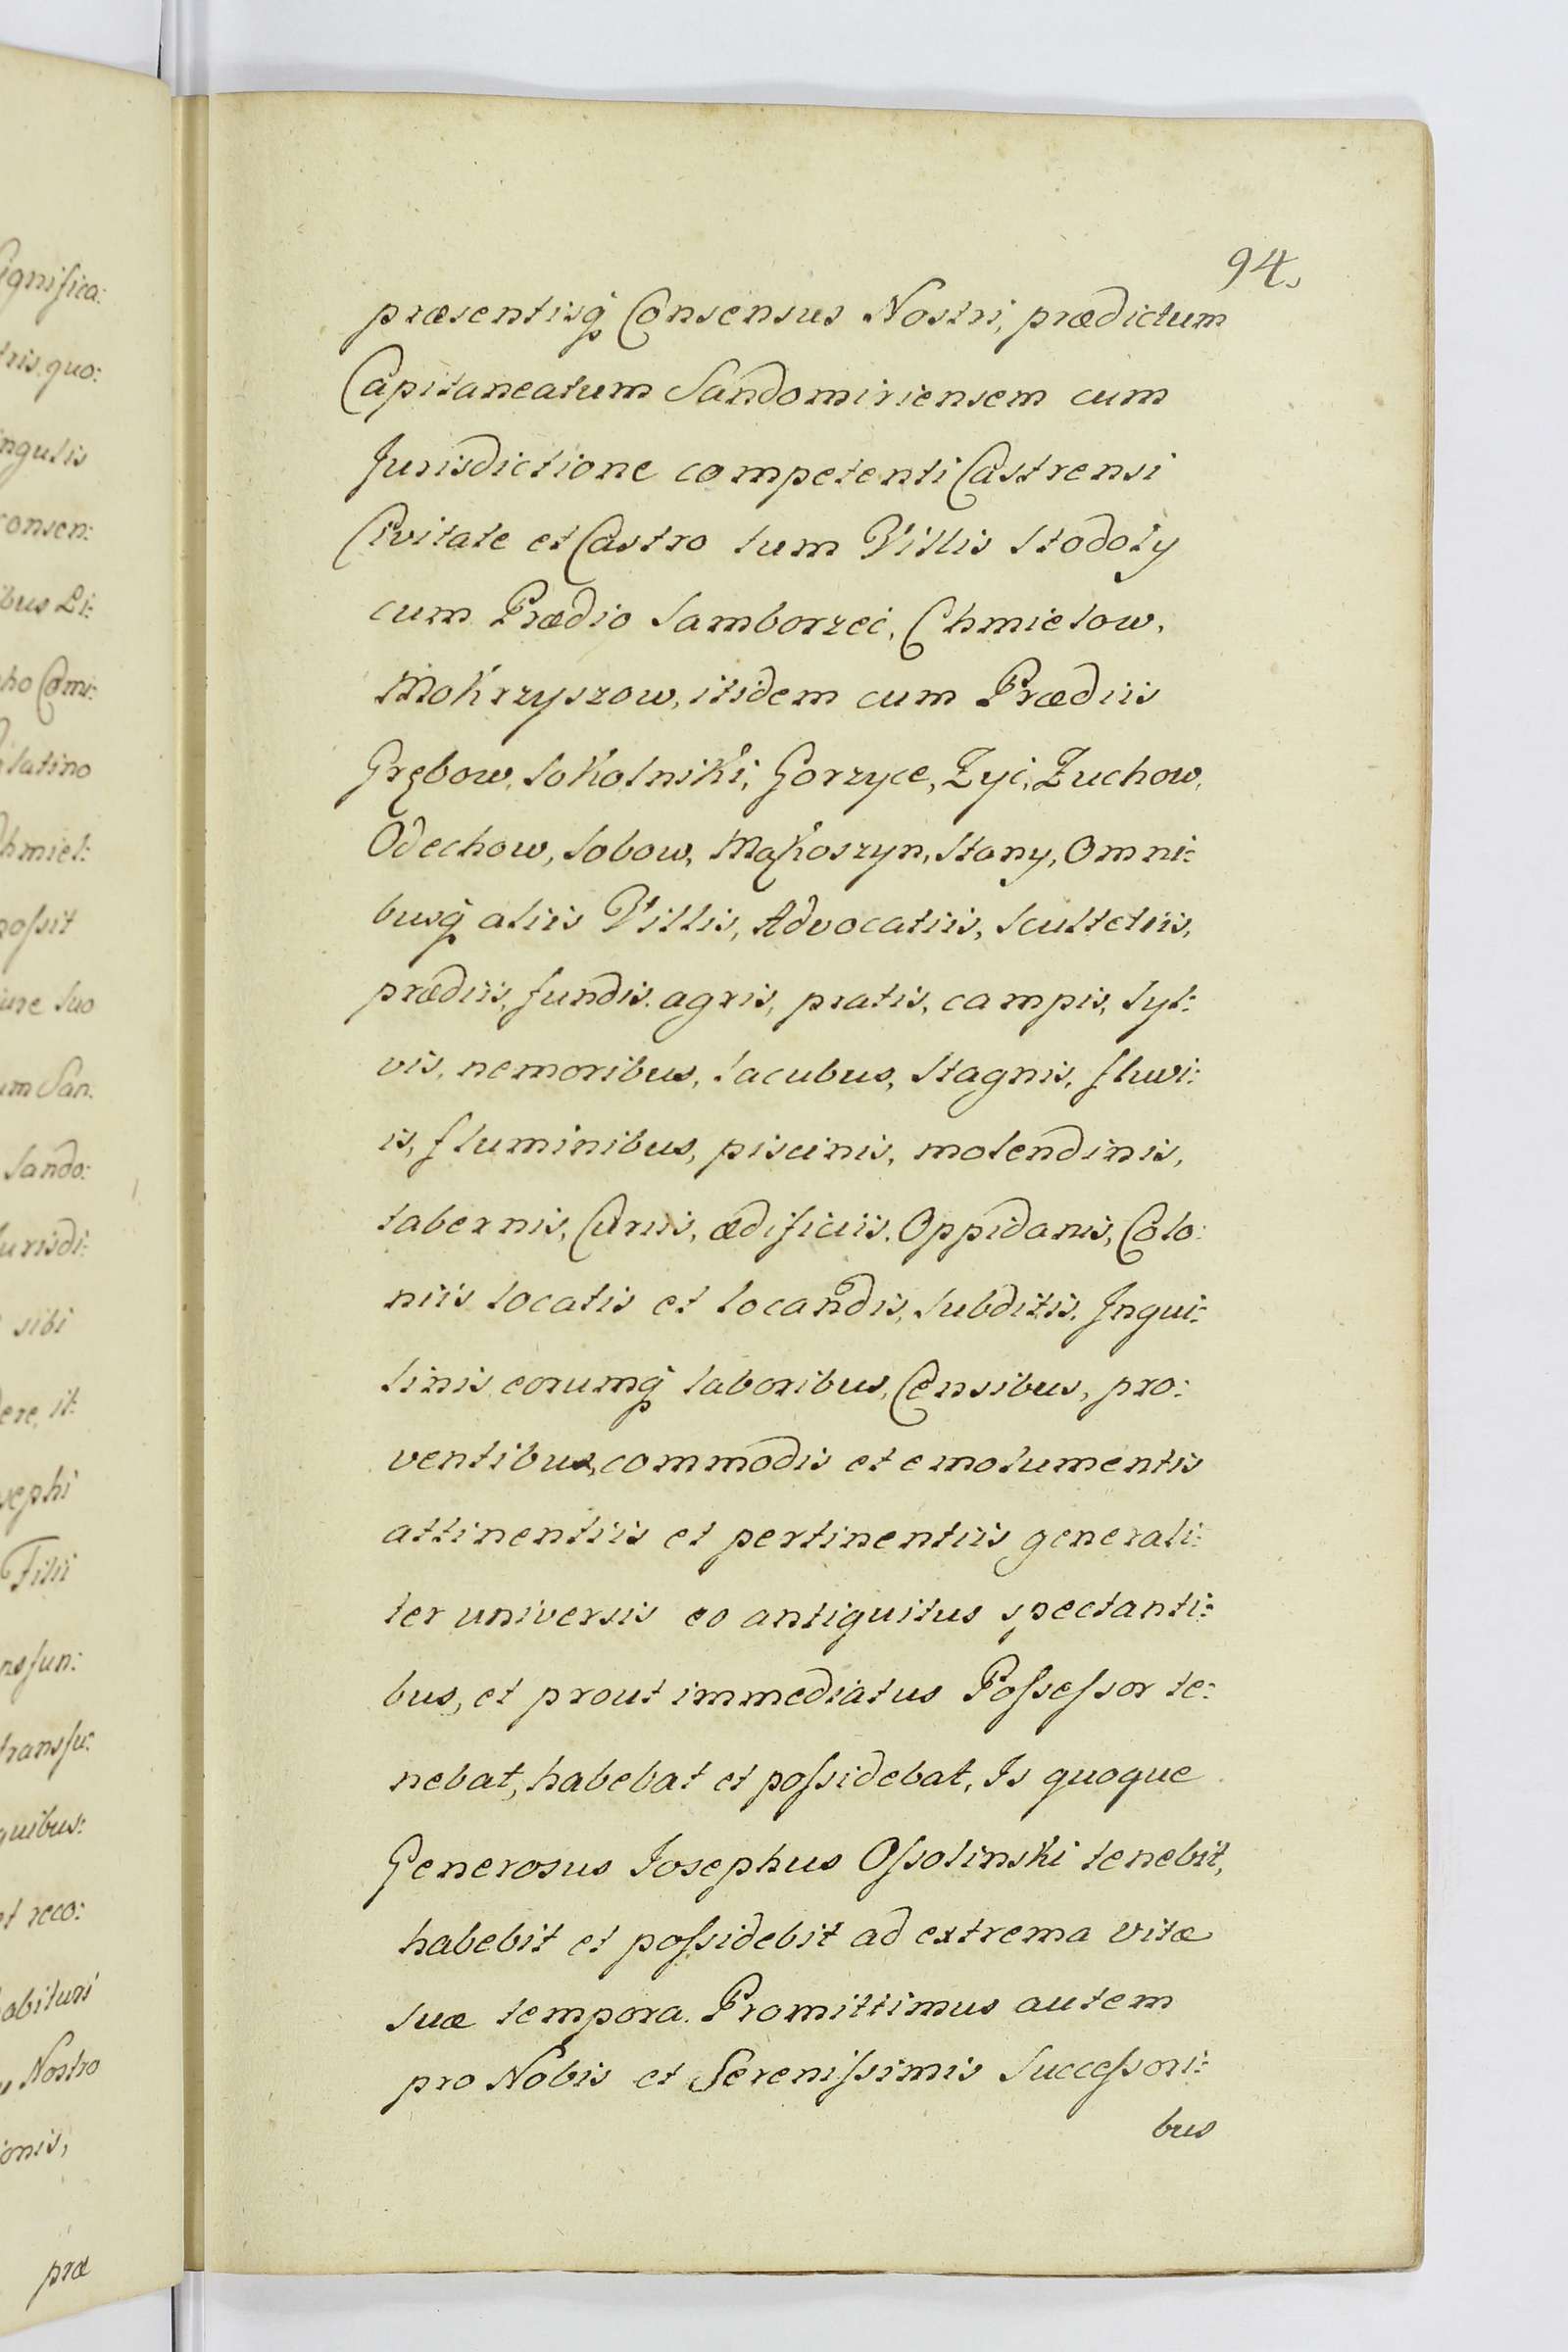 94.
præsentisq̃ Consensus Nostri, prædictum
Capitaneatum Sandomiriensem cum
Jurisdictione competenti Castrensi
Civitate et Castro tum Villis Stodoły
cum Prædio Samborzec, Chmielow,
Mokrzyszow, itidem cum Prædiis
Grębow, Sokolniki, Gorzyce, Zyc, Zuchow,
Odechow, Sobow, Makoszyn, Stany, Omni:
busq̃ aliis Villis, Advocatiis, Scultetiis,
prædiis, fundis, agris, pratis, campis, Syl:
vis, nemoribus, lacubus, Stagnis, fluvi:
is, fluminibus, piscinis, molendinis,
tabernis, Curiis, ædificiis, Oppidanis, Colo:
niis locatis et locandis, Subditis, Inqui:
linis eorumq̃ laboribus, Censibus, pro:
ventibus, commodis et emolumentis
attinentiis et pertinentiis generali:
ter universis eo antiquitus spectanti:
bus, et prout immediatus Possessor te:
nebat, habebat et possidebat, Is quoque
Generosus Josephus Ossolinski tenebit,
habebit et possidebit ad extrema vitæ
suæ tempora. Promittimus autem
pro Nobis et Serenissimis Successori:
bus
ignifica:
tris quo:
ngulis
consen:
ibus Li:
ho Comi:
latino
hmiel:
possit
iure suo
um San.
Sando:
Jurisdi:
sibi
ere, it:
sephi
Filii
nsfun:
transfu:
quibus:
t reco:
abituri
Nostro
ionis,
præ